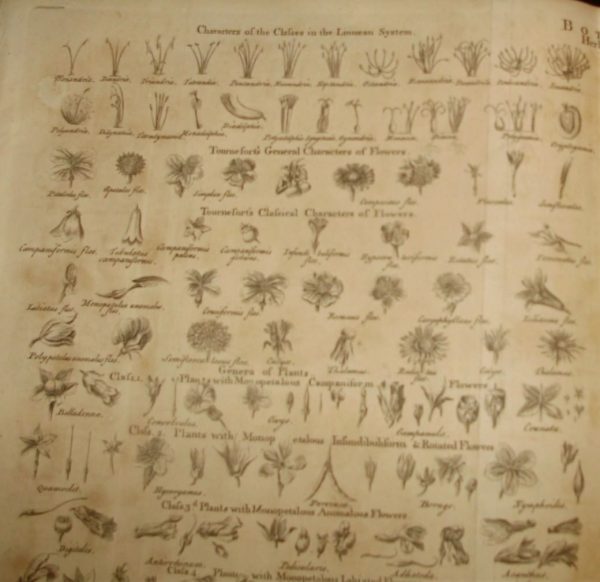 Characters of the Classes in the Linnean System.
Monandria. Diandria. Triandria. Tetrandria. Pentandria. Hexandria. Heptandria. Octandria. Enneandria. Decandria. Dodecandria. Icosandria.
Polyandria. Didynamia. Tetradynamia. Monadelphia. Diadelphia. Polyadelphia. Syngenesia. Gynandria. Monœcia. Diœcia. Polygamia. Cryptogamia.
Tournefort's General Characters of Flowers.
Petalodes flos. Apetalus flos. Simplex flos. Compositus flos. Flosculus. Semiflosculus.
Tournefort's Classical Characters of Flowers.
Campaniformis flos. Tubulatus campaniformis. Campaniformis patens. Campaniformis globosus. Infundibuliformis flos. Hypocrateriformis flos. Rotatus flos.
Labiatus flos. Monopetalus anomalus flos. Cruciformis flos. Rosaceus flos. Caryophyllæus flos. Liliaceus flos.
Polypetalus anomalus flos. Semiflosculosus flos. Calyx. Thalamus. Radiatus flos. Calyx. Thalamus.
Genera of Plants
Class 1. Plants with Monopetalous Campaniform Flowers
Belladonna. Convolvulus. Campanula.
Class 2. Plants with Monopetalous Infundibuliform & Rotated Flowers
Quamoclit. Hyoscyamus. Borrago. Nymphoides.
Class 3d. Plants with Monopetalous Anomalous Flowers
Digitalis. Antirrhinum. Pedicularis. Adhatoda. Acanthus.
Class 4. Plants with Monopetalous Labiated Fl
Bot
Herb